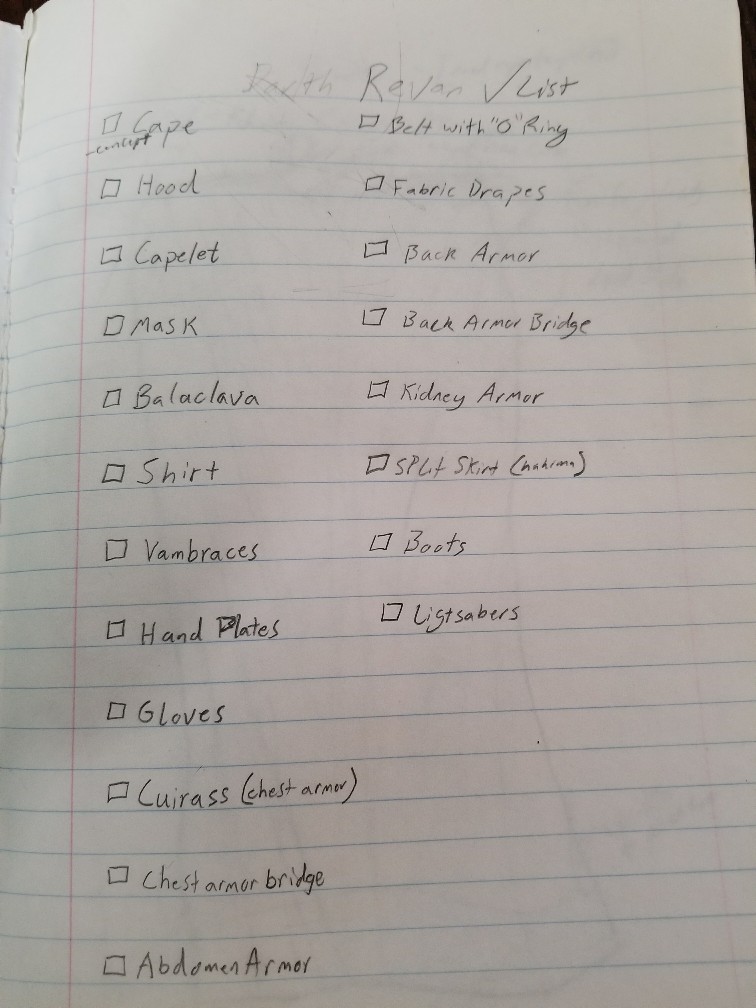 Darth Revan ✓List
☐ Cape
-concept
☐ Hood
☐ Capelet
☐ Mask
☐ Balaclava
☐ Shirt
☐ Vambraces
☐ Hand Plates
☐ Gloves
☐ Cuirass (chest armor)
☐ Chest armor bridge
☐ Abdomen Armor
☐ Belt with "O" Ring
☐ Fabric Drapes
☐ Back Armor
☐ Back Armor Bridge
☐ Kidney Armor
☐ Split Skirt
☐ Boots
☐ Ligtsabers